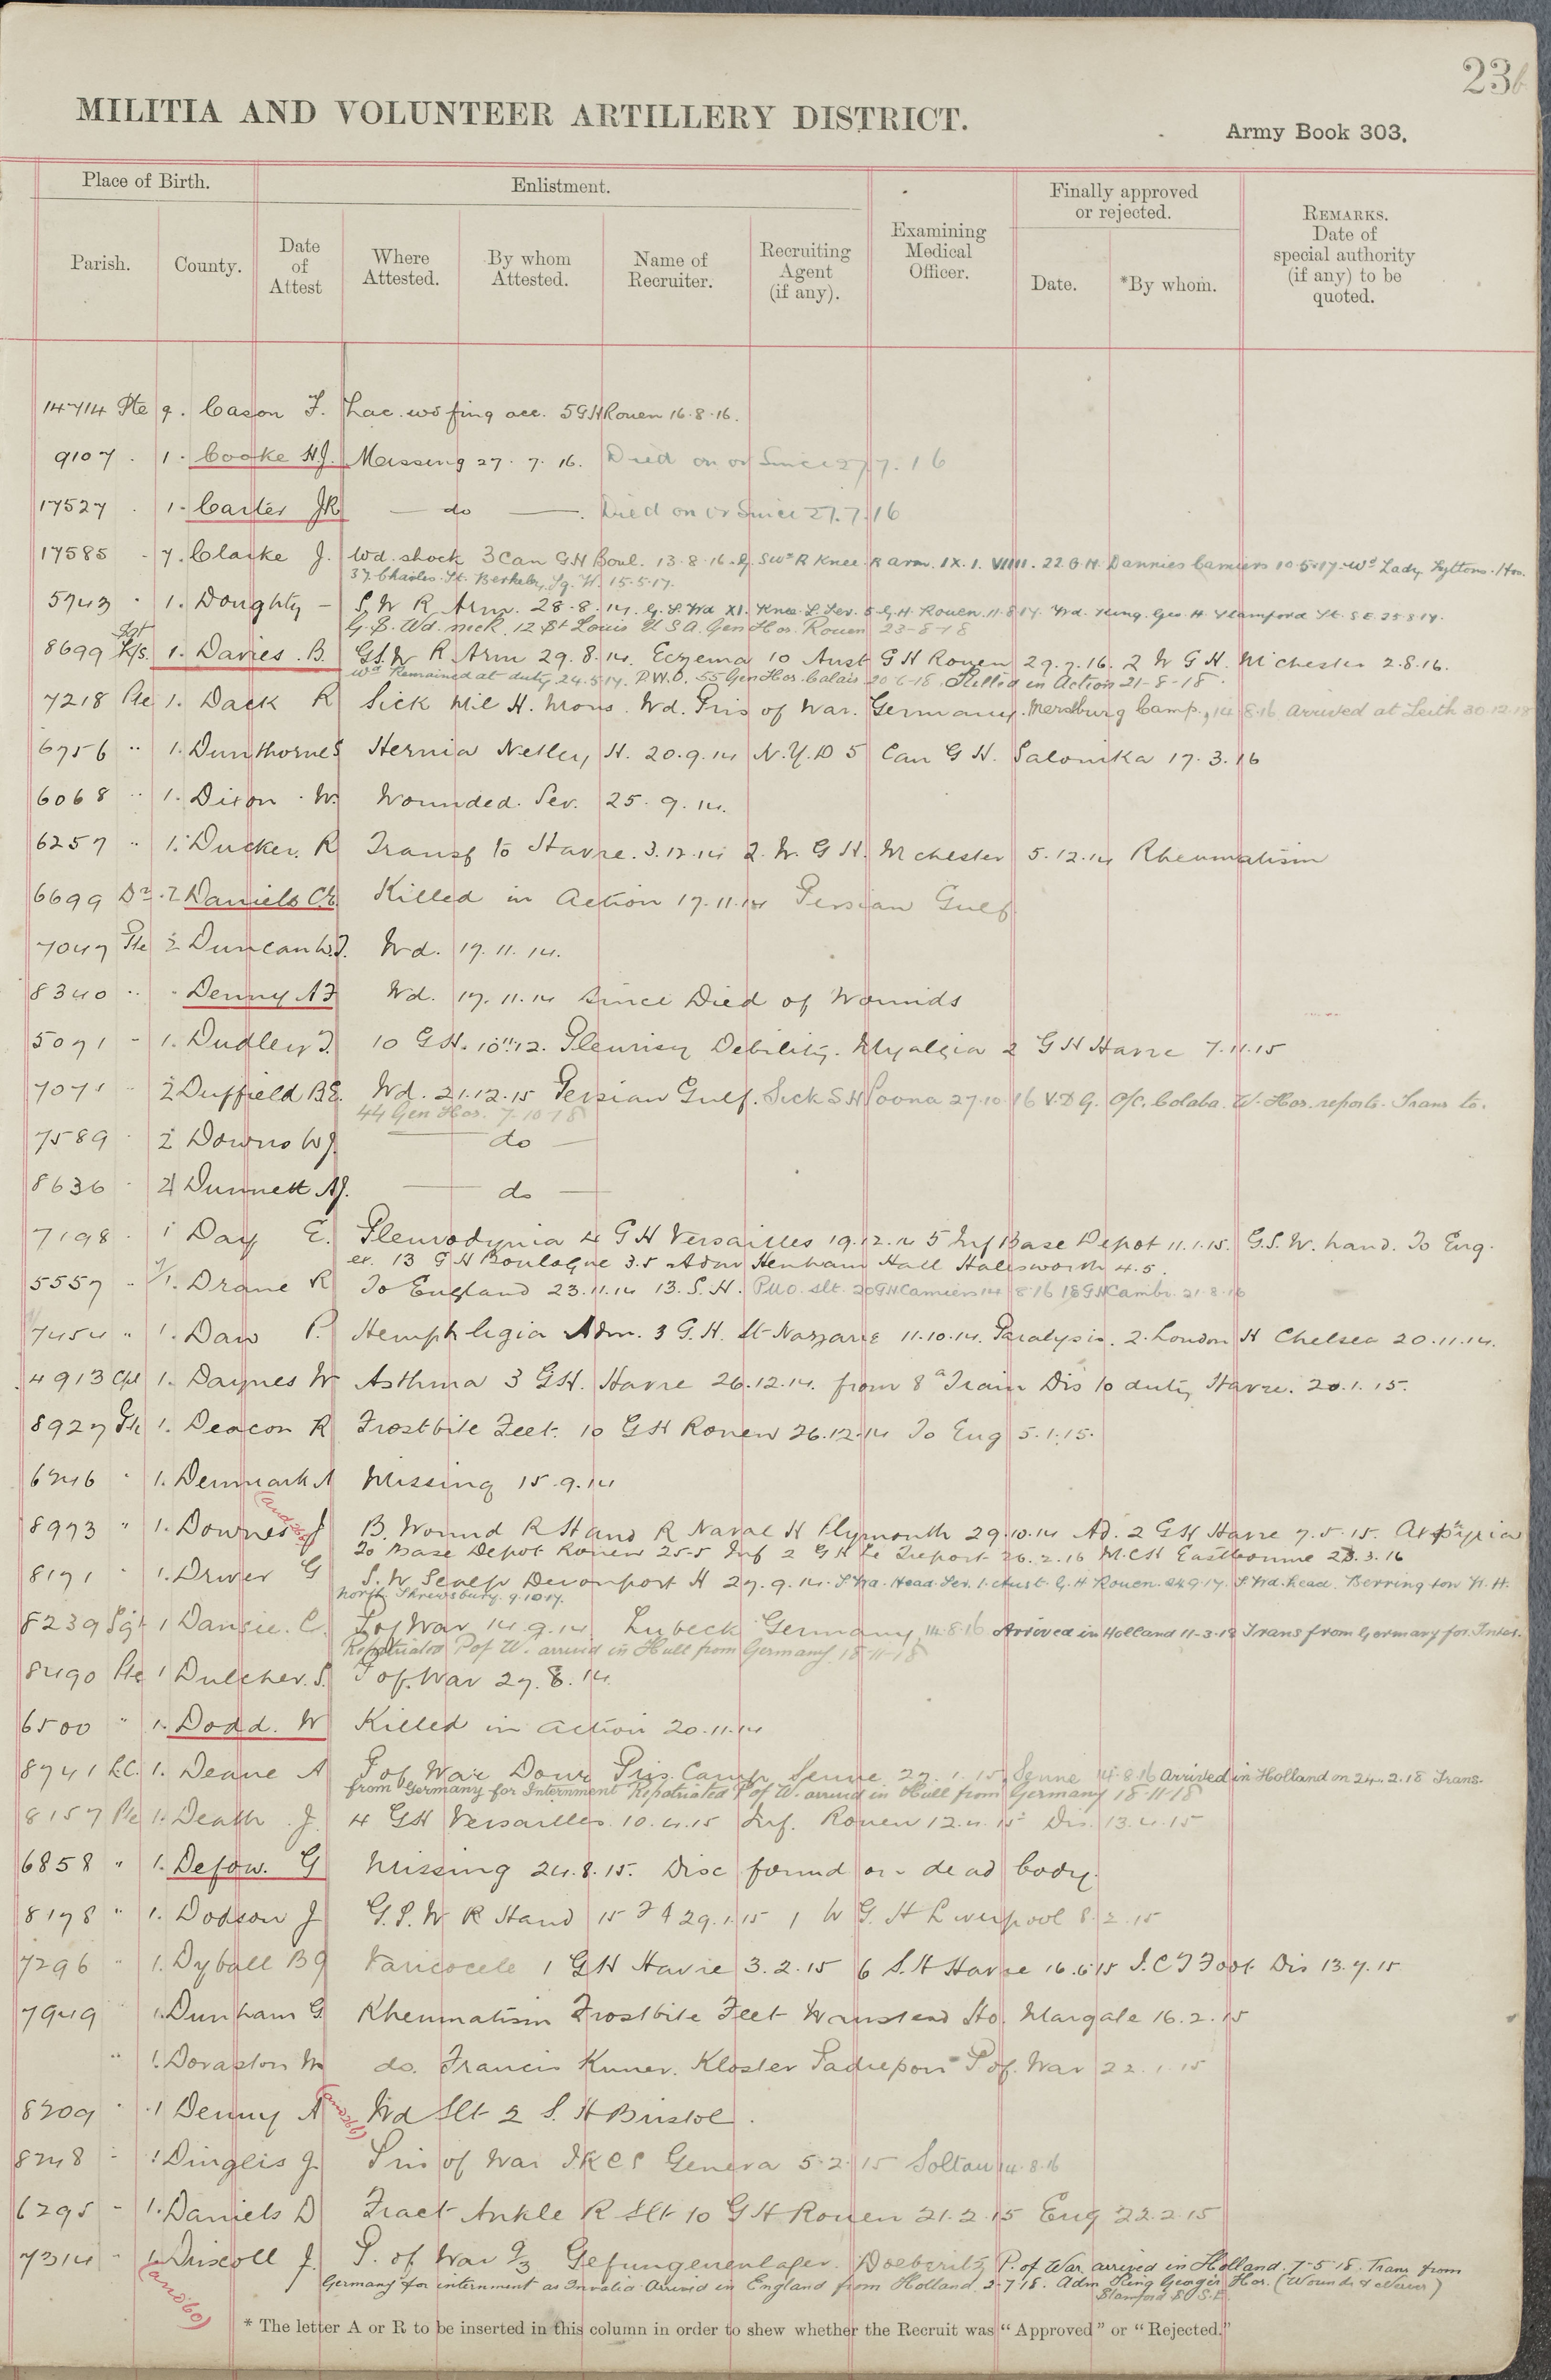 23b
MILITIA AND VOLUNTEER ARTILLERY DISTRICT.
Army Book 303.
Place of Birth. Enlistment. Finally approved or rejected.
Parish. County. Date of Attest Where Attested. By whom Attested. Name of Recruiter. Recruiting Agent (if any). Examining Medical Officer. Date. *By whom. REMARKS. Date of special authority (if any) to be quoted.
14714 Pte 9. Cason F. Lac. wd fing acc. 5 G H Rouen 16.8.16.
9107 . 1. Cooke H J. Missing 27.7.16. Died on or Since 27.7.16
17527 . 1. Carter J R — do — Died on or Since 27.7.16
17585 . 7. Clarke J. Wd. shock 3 Can G H Boul. 13.8.16. R Knee R arm. IX. 1. VIIII. 22 G H. Dannies Camiers 10.5.17. Wd Lady Lyttons. Hos.
37 Charles St. Berkeley Sq. W. 15.5.17.
5743 . 1. Doughty — S W R Arm. 28.8.14. G. S. Wd XI. Knee L. Sev. 5 G. H. Rouen. 11.8.17. Wd. King. Geo. H. Stamford St. S E. 25.8.17.
G. S. Wd. neck. 12 St Louis U S A. Gen Hos. Rouen 23-8-18
8699 Sgt 1. Davies. B. G S. W R Arm 29.8.14. Eczema 10 Aust G H Rouen 29.7.16. 2 W G H. Mchester 2.8.16.
Wd Remained at duty 24.5.17. P.U.O. 55 Gen Hos. Calais 20-6-18. Killed in Action 21-8-18.
7218 Pte 1. Dack R Sick Mil H. Mons. Wd. Pris of War. Germany. Merseburg Camp. 14.8.16 arrived at Leith 30.12.18
6756 " 1. Dunthorne S Hernia Netley H. 20.9.14 N.Y.D 5 Can G H. Salonika 17.3.16
6068 " 1. Dixon W. Wounded. Sev. 25.9.14.
6257 " 1. Ducker. R Transf to Havre. 3.12.14 2. W. G H. Mchester 5.12.14 Rheumatism
6699 Dr. 2 Daniels C. E. Killed in Action 17.11.14 Persian Gulf
7047 Pte 2 Duncan W. J. Wd. 17.11.14.
8340 " " Denny A F Wd. 17.11.14 Since Died of Wounds
5071 " 1. Dudley J. 10 G H. 10.12. Pleurisy Debility. Myalgia 2 G H Havre 7.11.15
7071 " 2 Duffield B E. Wd. 21.12.15 Persian Gulf. Sick S H Poona 27.10.16 V.D G. O/C. Colaba. W. Hos. reports. Trans to.
44 Gen Hos. 7-10-18
7589 . 2 Downs W J. — do —
8636 . 2 Dunnett A J. — do —
7198 . 1 Day E. Pleurodynia 4 G H Versailles 19.12.14 5 Inf Base Depot 11.1.15. G.S.W. hand. To Eng.
ex. 13 G H Boulogne 3.5 Adm Henham Hall Halesworth 4.5.
5557 . 1. Drane R To England 23.11.14 13. S. H. P.U.O. slt. 20 G H Camiers 14.8.16 18 G H Cambr. 21.8.16
7454 " 1. Daw P. Hemphlegia Adm. 3 G.H. St Nazaire 11.10.14. Paralysis. 2. London H Chelsea 20.11.14.
4913 Cpl 1. Daynes W Asthma 3 G H. Havre 26.12.14. from 8a Train Dis to duty Havre. 20.1.15.
8927 Pte 1. Deacon R Frostbite Feet. 10 G H Rouen 26.12.14 To Eng 5.1.15.
6246 . 1. Denmark A Missing 15.9.14
8973 " 1. Downes J B. Wound R Hand R Naval H Plymouth 29.10.14 Ad. 2 G H Havre 7.5.15.
To Base Depot Rouen 25.5 Inf 2 G H Le Treport 26.2.16 M.C H Eastbourne 23.3.16
8171 " 1. Driver G S. W Scalp Devonport H 27.9.14. S Wd. Head. Sev. 1. Aust. G. H Rouen. 24.9.17. S Wd. head. Berrington W. H.
north Shrewsbury. 9.10.17.
8239 Sgt 1 Dansie. C. P of War 14.9.14. Lubeck Germany 14.8.16 Arrived in Holland 11-3-18 Trans from Germany for Inter.
Repatriated P of W. arrived in Hull from Germany 18-11-18
8490 Pte 1 Dulcher. S. P of. War 27.8.14.
6500 " 1. Dodd. W Killed in action 20.11.14
8741 L.C. 1. Deane A P of War Pris. Camp Senne 27.1.15 Senne 14.8.16 Arrived in Holland on 24.2.18 Trans.
from Germany for Internment Repatriated P of W. arrived in Hull from Germany 18-11-18
8157 Pte 1. Death. J. 4 G H Versailles. 10.4.15 Inf. Rouen 12.4.15 Dis. 13.4.15
6858 " 1. Defow. G Missing 24.8.15. Disc found on dead body.
8178 " 1. Dodson J G. S. W R Hand 15 29.1.15 1 W G. H Liverpool 8.2.15
7296 " 1. Dyball B G Varicocele 1 G H Havre 3.2.15 6 S. H Havre 16.6.15 I.C.T Foot Dis 13.7.15
7949 1. Dunham G. Rheumatism Frostbite Feet Wanstead Ho. Margate 16.2.15
" 1. Doraston W do. Francis Kloster P of. War 22.1.15
8209 . 1 Denny A Wd Slt 2 S. H Bristol.
8248 1 Dinglis J. Pris of War Geneva 5.2.15 Soltau 14.8.16
6295 " 1. Daniels D Fract Ankle R Slt 10 G H Rouen 21.2.15 Eng 22.2.15
7314 " 1. Driscoll J. P. of War Gefungenenlager. Doeberitz P. of War arrived in Holland. 7-5-18. Trans from
Germany for internment as Invalid. Arrived in England from Holland. 2-7-18. Adm King George's Hos. (Wounds & Nerves)
Stamford St S.E.
* The letter A or R to be inserted in this column in order to shew whether the Recruit was "Approved" or "Rejected."